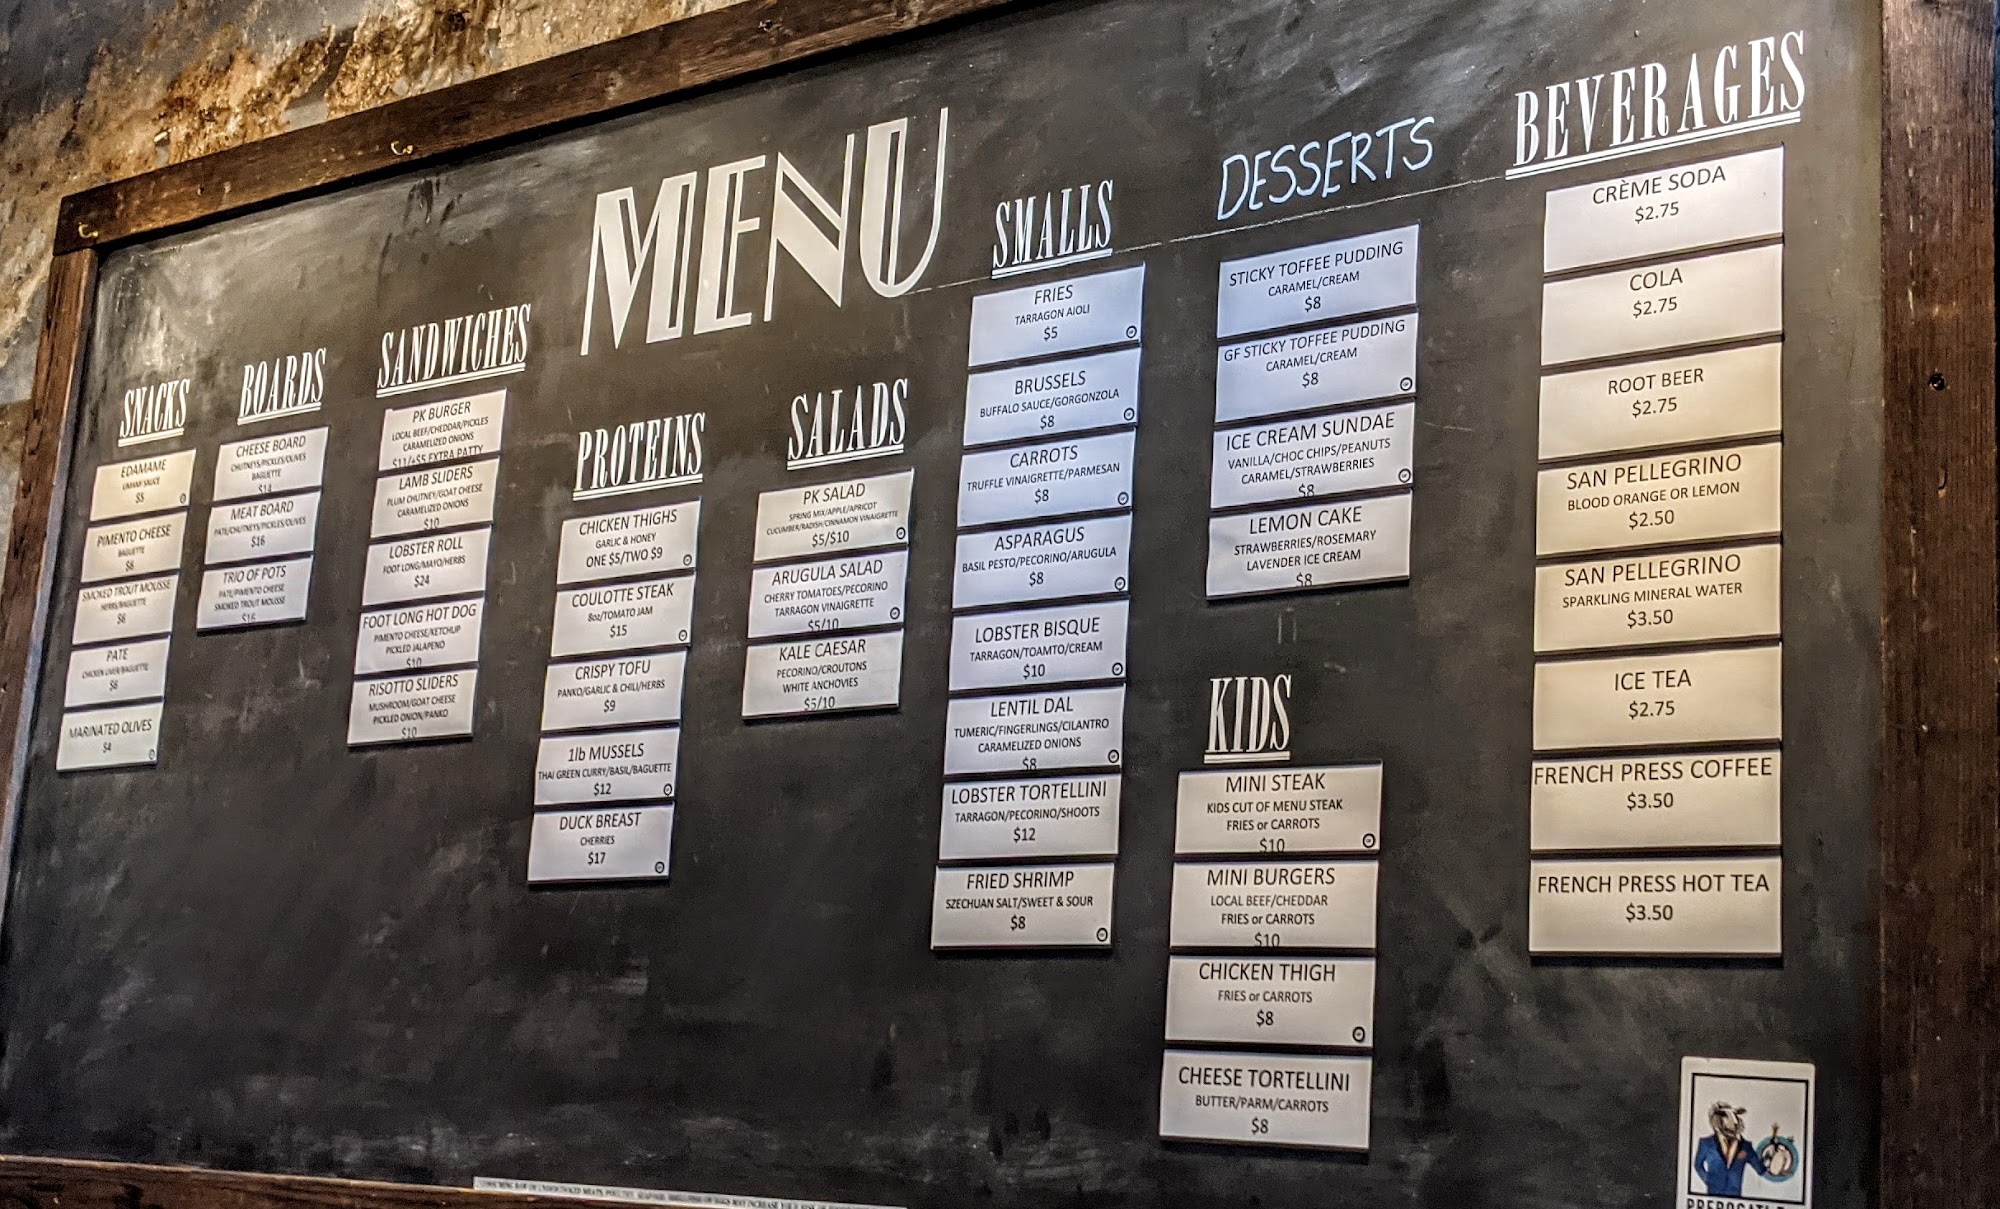 MENU
SNACKS
EDAMAME
UMAMI SAUCE
$5
PIMENTO CHEESE
BAGUETTE
$6
SMOKED TROUT MOUSSE
HERBS/BAGUETTE
$6
PATE
CHICKEN LIVER/BAGUETTE
$6
MARINATED OLIVES
$4
BOARDS
CHEESE BOARD
CHUTNEYS/PICKLES/OLIVES
BAGUETTE
$14
MEAT BOARD
PATE/CHUTNEYS/PICKLES/OLIVES
$16
TRIO OF POTS
PATE/PIMENTO CHEESE
SMOKED TROUT MOUSSE
$16
SANDWICHES
PK BURGER
LOCAL BEEF/CHEDDAR/PICKLES
CARAMELIZED ONIONS
$11/+$5 EXTRA PATTY
LAMB SLIDERS
PLUM CHUTNEY/GOAT CHEESE
CARAMELIZED ONIONS
$10
LOBSTER ROLL
FOOT LONG/MAYO/HERBS
$24
FOOT LONG HOT DOG
PIMENTO CHEESE/KETCHUP
PICKLED JALAPENO
$10
RISOTTO SLIDERS
MUSHROOM/GOAT CHEESE
PICKLED ONION/PANKO
$10
PROTEINS
CHICKEN THIGHS
GARLIC & HONEY
ONE $5/TWO $9
COULOTTE STEAK
8oz/TOMATO JAM
$15
CRISPY TOFU
PANKO/GARLIC & CHILI/HERBS
$9
1lb MUSSELS
THAI GREEN CURRY/BASIL/BAGUETTE
$12
DUCK BREAST
CHERRIES
$17
SALADS
PK SALAD
SPRING MIX/APPLE/APRICOT
CUCUMBER/RADISH/CINNAMON VINAIGRETTE
$5/$10
ARUGULA SALAD
CHERRY TOMATOES/PECORINO
TARRAGON VINAIGRETTE
$5/10
KALE CAESAR
PECORINO/CROUTONS
WHITE ANCHOVIES
$5/10
SMALLS
FRIES
TARRAGON AIOLI
$5
BRUSSELS
BUFFALO SAUCE/GORGONZOLA
$8
CARROTS
TRUFFLE VINAIGRETTE/PARMESAN
$8
ASPARAGUS
BASIL PESTO/PECORINO/ARUGULA
$8
LOBSTER BISQUE
TARRAGON/TOAMTO/CREAM
$10
LENTIL DAL
TUMERIC/FINGERLINGS/CILANTRO
CARAMELIZED ONIONS
$8
LOBSTER TORTELLINI
TARRAGON/PECORINO/SHOOTS
$12
FRIED SHRIMP
SZECHUAN SALT/SWEET & SOUR
$8
DESSERTS
STICKY TOFFEE PUDDING
CARAMEL/CREAM
$8
GF STICKY TOFFEE PUDDING
CARAMEL/CREAM
$8
ICE CREAM SUNDAE
VANILLA/CHOC CHIPS/PEANUTS
CARAMEL/STRAWBERRIES
$8
LEMON CAKE
STRAWBERRIES/ROSEMARY
LAVENDER ICE CREAM
$8
KIDS
MINI STEAK
KIDS CUT OF MENU STEAK
FRIES or CARROTS
$10
MINI BURGERS
LOCAL BEEF/CHEDDAR
FRIES or CARROTS
$10
CHICKEN THIGH
FRIES or CARROTS
$8
CHEESE TORTELLINI
BUTTER/PARM/CARROTS
$8
BEVERAGES
CRÈME SODA
$2.75
COLA
$2.75
ROOT BEER
$2.75
SAN PELLEGRINO
BLOOD ORANGE OR LEMON
$2.50
SAN PELLEGRINO
SPARKLING MINERAL WATER
$3.50
ICE TEA
$2.75
FRENCH PRESS COFFEE
$3.50
FRENCH PRESS HOT TEA
$3.50